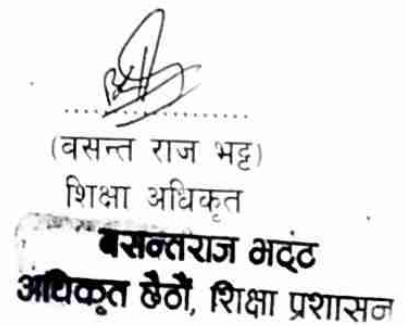 (वसन्त राज भट्ट)
शिक्षा अधिकृत
बसन्तराज भदंट
अधिकृत छैठौं, शिक्षा प्रशासन